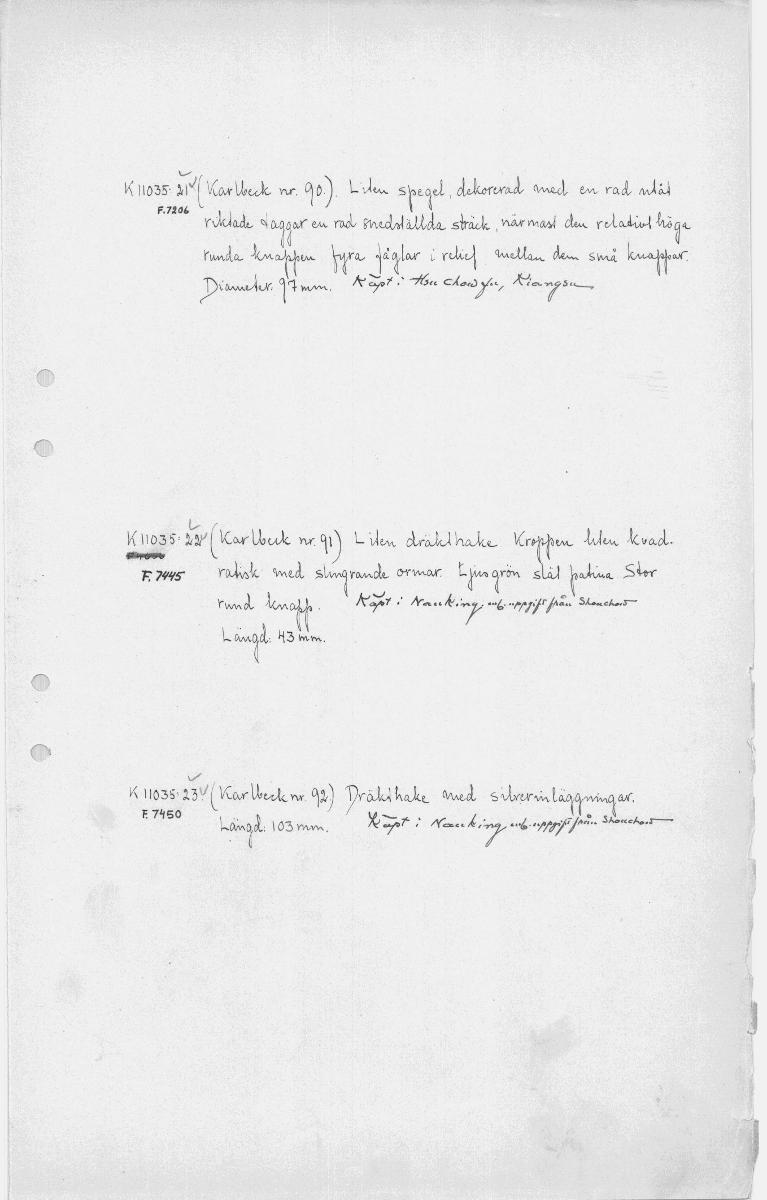 K 11035:21 (Karlbeck nr. 90.). Liten spegel, dekorerad med en rad utåt
F.7206
riktade taggar en rad snedställda sträck, närmast den relativt höga
runda knappen fyra fåglar i relief mellan dem små knappar.
Diameter: 97 mm. Köpt i Hsu chow fu, Kiangsu
K 11035:22 (Karlbeck nr. 91) Liten dräkthake Kroppen liten kvad-
F. 7445
ratisk med slingrande ormar. Ljusgrön slät patina Stor
rund knapp. Köpt i Nanking, enl. uppgift från Shouchow
Längd: 43 mm.
K 11035:23. (Karlbeck nr. 92.) Dräkthake med silverinläggningar.
F. 7450
Längd: 103 mm. Köpt i Nanking enl. uppgift från Shouchow